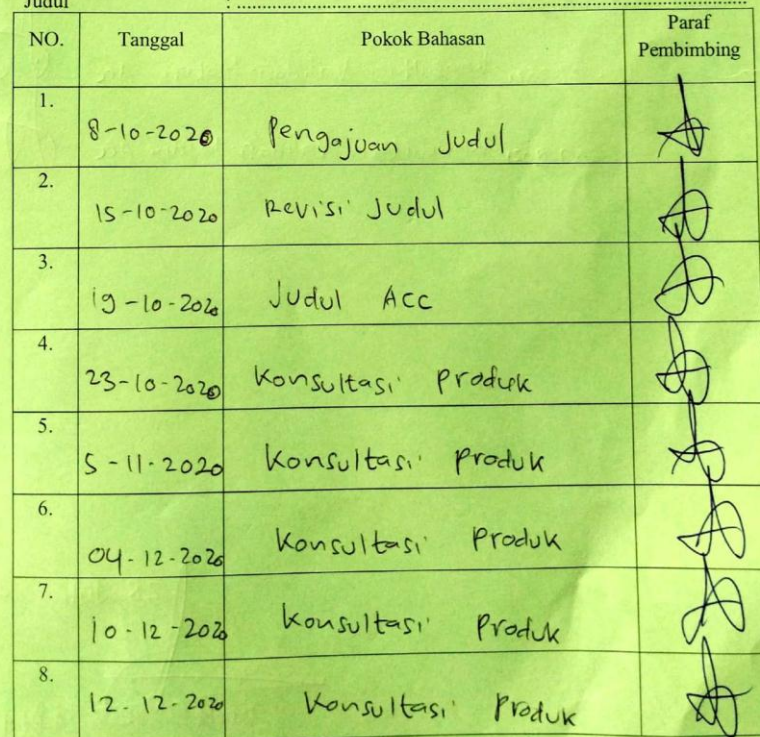 Judul : ........................................
NO. Tanggal Pokok Bahasan Paraf
Pembimbing
1.
8-10-2020 Pengajuan Judul
2.
15-10-2020 Revisi Judul
3.
19-10-2020 Judul ACC
4.
23-10-2020 Konsultasi Produk
5.
5-11-2020 Konsultasi Produk
6.
04-12-2020 Konsultasi Produk
7.
10-12-2020 Konsultasi Produk
8.
12-12-2020 Konsultasi Produk